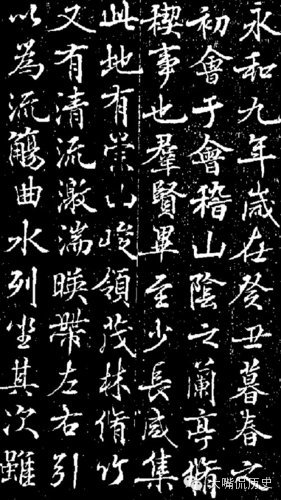 永和九年歲在癸丑暮春之
初會于會稽山陰之蘭亭脩
稧事也羣賢畢至少長咸集
此地有崇山峻領茂林脩竹
又有清流激湍暎帶左右引
以為流觴曲水列坐其次雖
大嘴侃历史